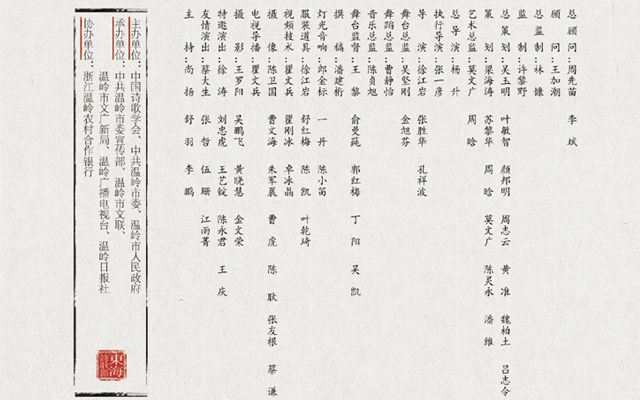 总顾问：周先苗 李斌
顾问：王加潮
总监制：林慷
监制：许黎野
总策划：吴玉明 叶敏智 颜邦明 周志云 黄准 魏柏土 吕志令
策划：梁海涛 苏黎华 周晗 莫文广 陈灵永 潘维
艺术总监：莫文广 周晗
总导演：杨升
执行导演：张一彦
导演：徐江岩 张胜华 孔祥波
舞台总监：吴坚刚 金旭芬
舞蹈总监：曹静怡
音乐总监：陈贞旭
舞台监督：王黎 俞曼莼 郭红梅 丁阳 吴凯
撰稿：潘建桁
灯光音响：郎金标 一丹 陈小笛
服装道具：徐江岩 舒红梅 陈凯 叶乾琦
视频技术：瞿文兵 瞿刚冰 卓冰晶
摄像：陈卫国 曹文海 朱军晨 曹虎 陈耿 张友根 蔡谦
电视导播：瞿文兵
摄影：王罗阳 吴鹏飞 黄晓慧 金文荣
特邀演出：徐涛 刘忠虎 王艺锭 陈永君 王庆
友情演出：蔡大生 张哲 伍珊 江雨菁
主持：尚扬 舒羽 李鹏
主办单位：中国诗歌学会、中共温岭市委、温岭市人民政府
承办单位：中共温岭市委宣传部、温岭市文联、
温岭市文广新局、温岭广播电视台、温岭日报社
协办单位：浙江温岭农村合作银行
東海